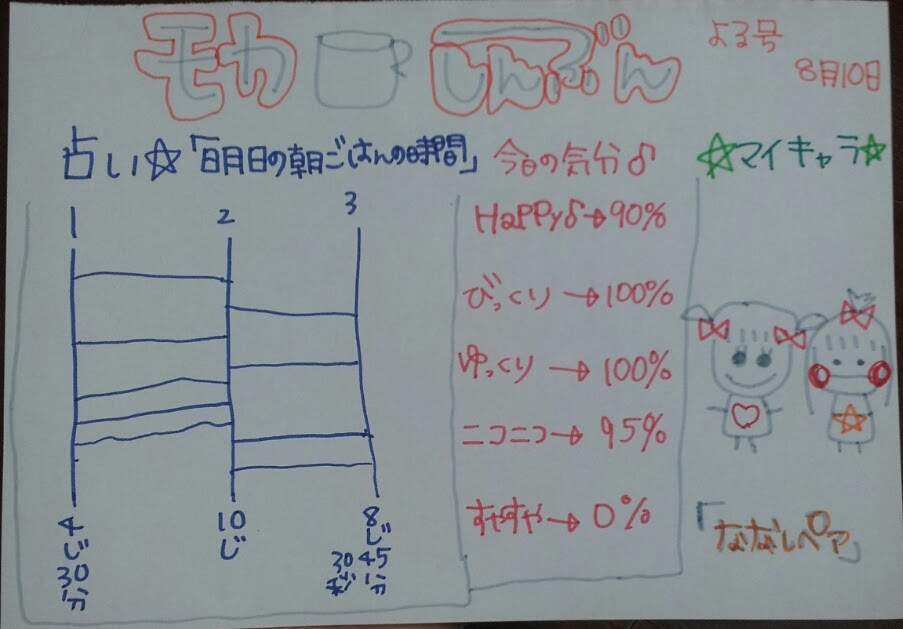 モカ しんぶん
よる号
8月10日
占い☆「明日の朝ごはんの時間」
1 2 3
4じ30ぷん
10じ
8じ45ふん
今日の気分♪
HaPPy♪→90%
びっくり→100%
ゆっくり→100%
ニコニコ→95%
すやすや→0%
☆マイキャラ☆
「ななしペア」